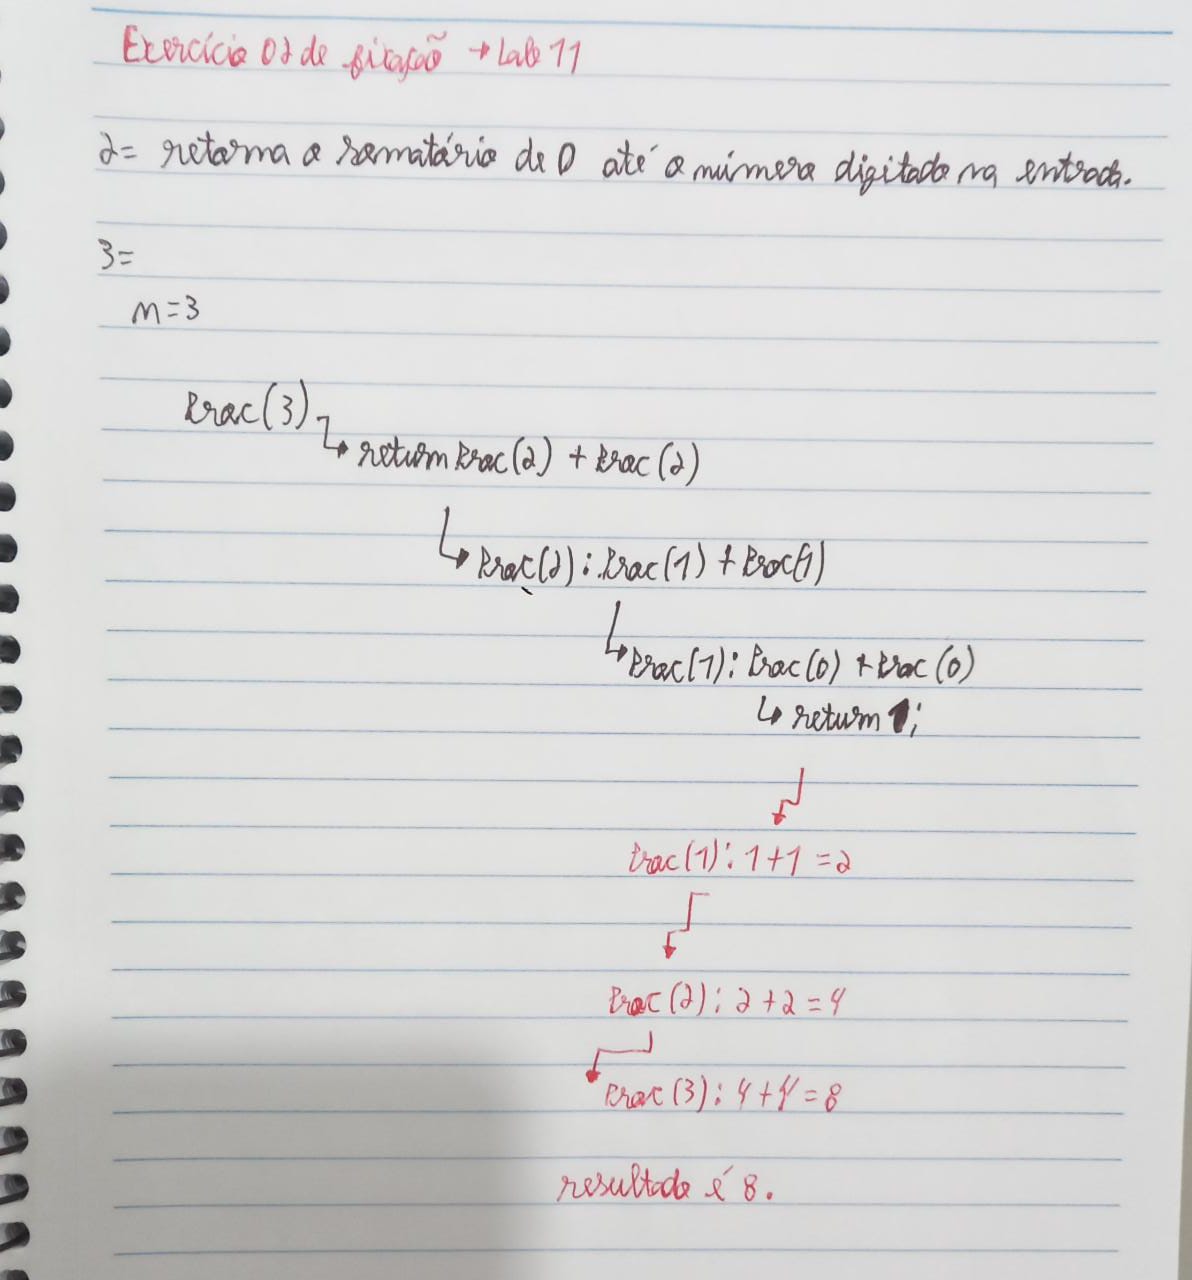 Exercício 02 de fixação → Lab 11
2= retorna o somatório de 0 até o número digitado na entrada.
3=
n=3
Proc(3)
↳ return Proc(2) + Proc(2)
↳ Proc(2): Proc(1) + Proc(1)
↳ Proc(1): Proc(0) + Proc(0)
↳ return 1;
Proc(1): 1+1 =2
Proc(2): 2+2=4
Proc(3): 4+4=8
resultado é 8.